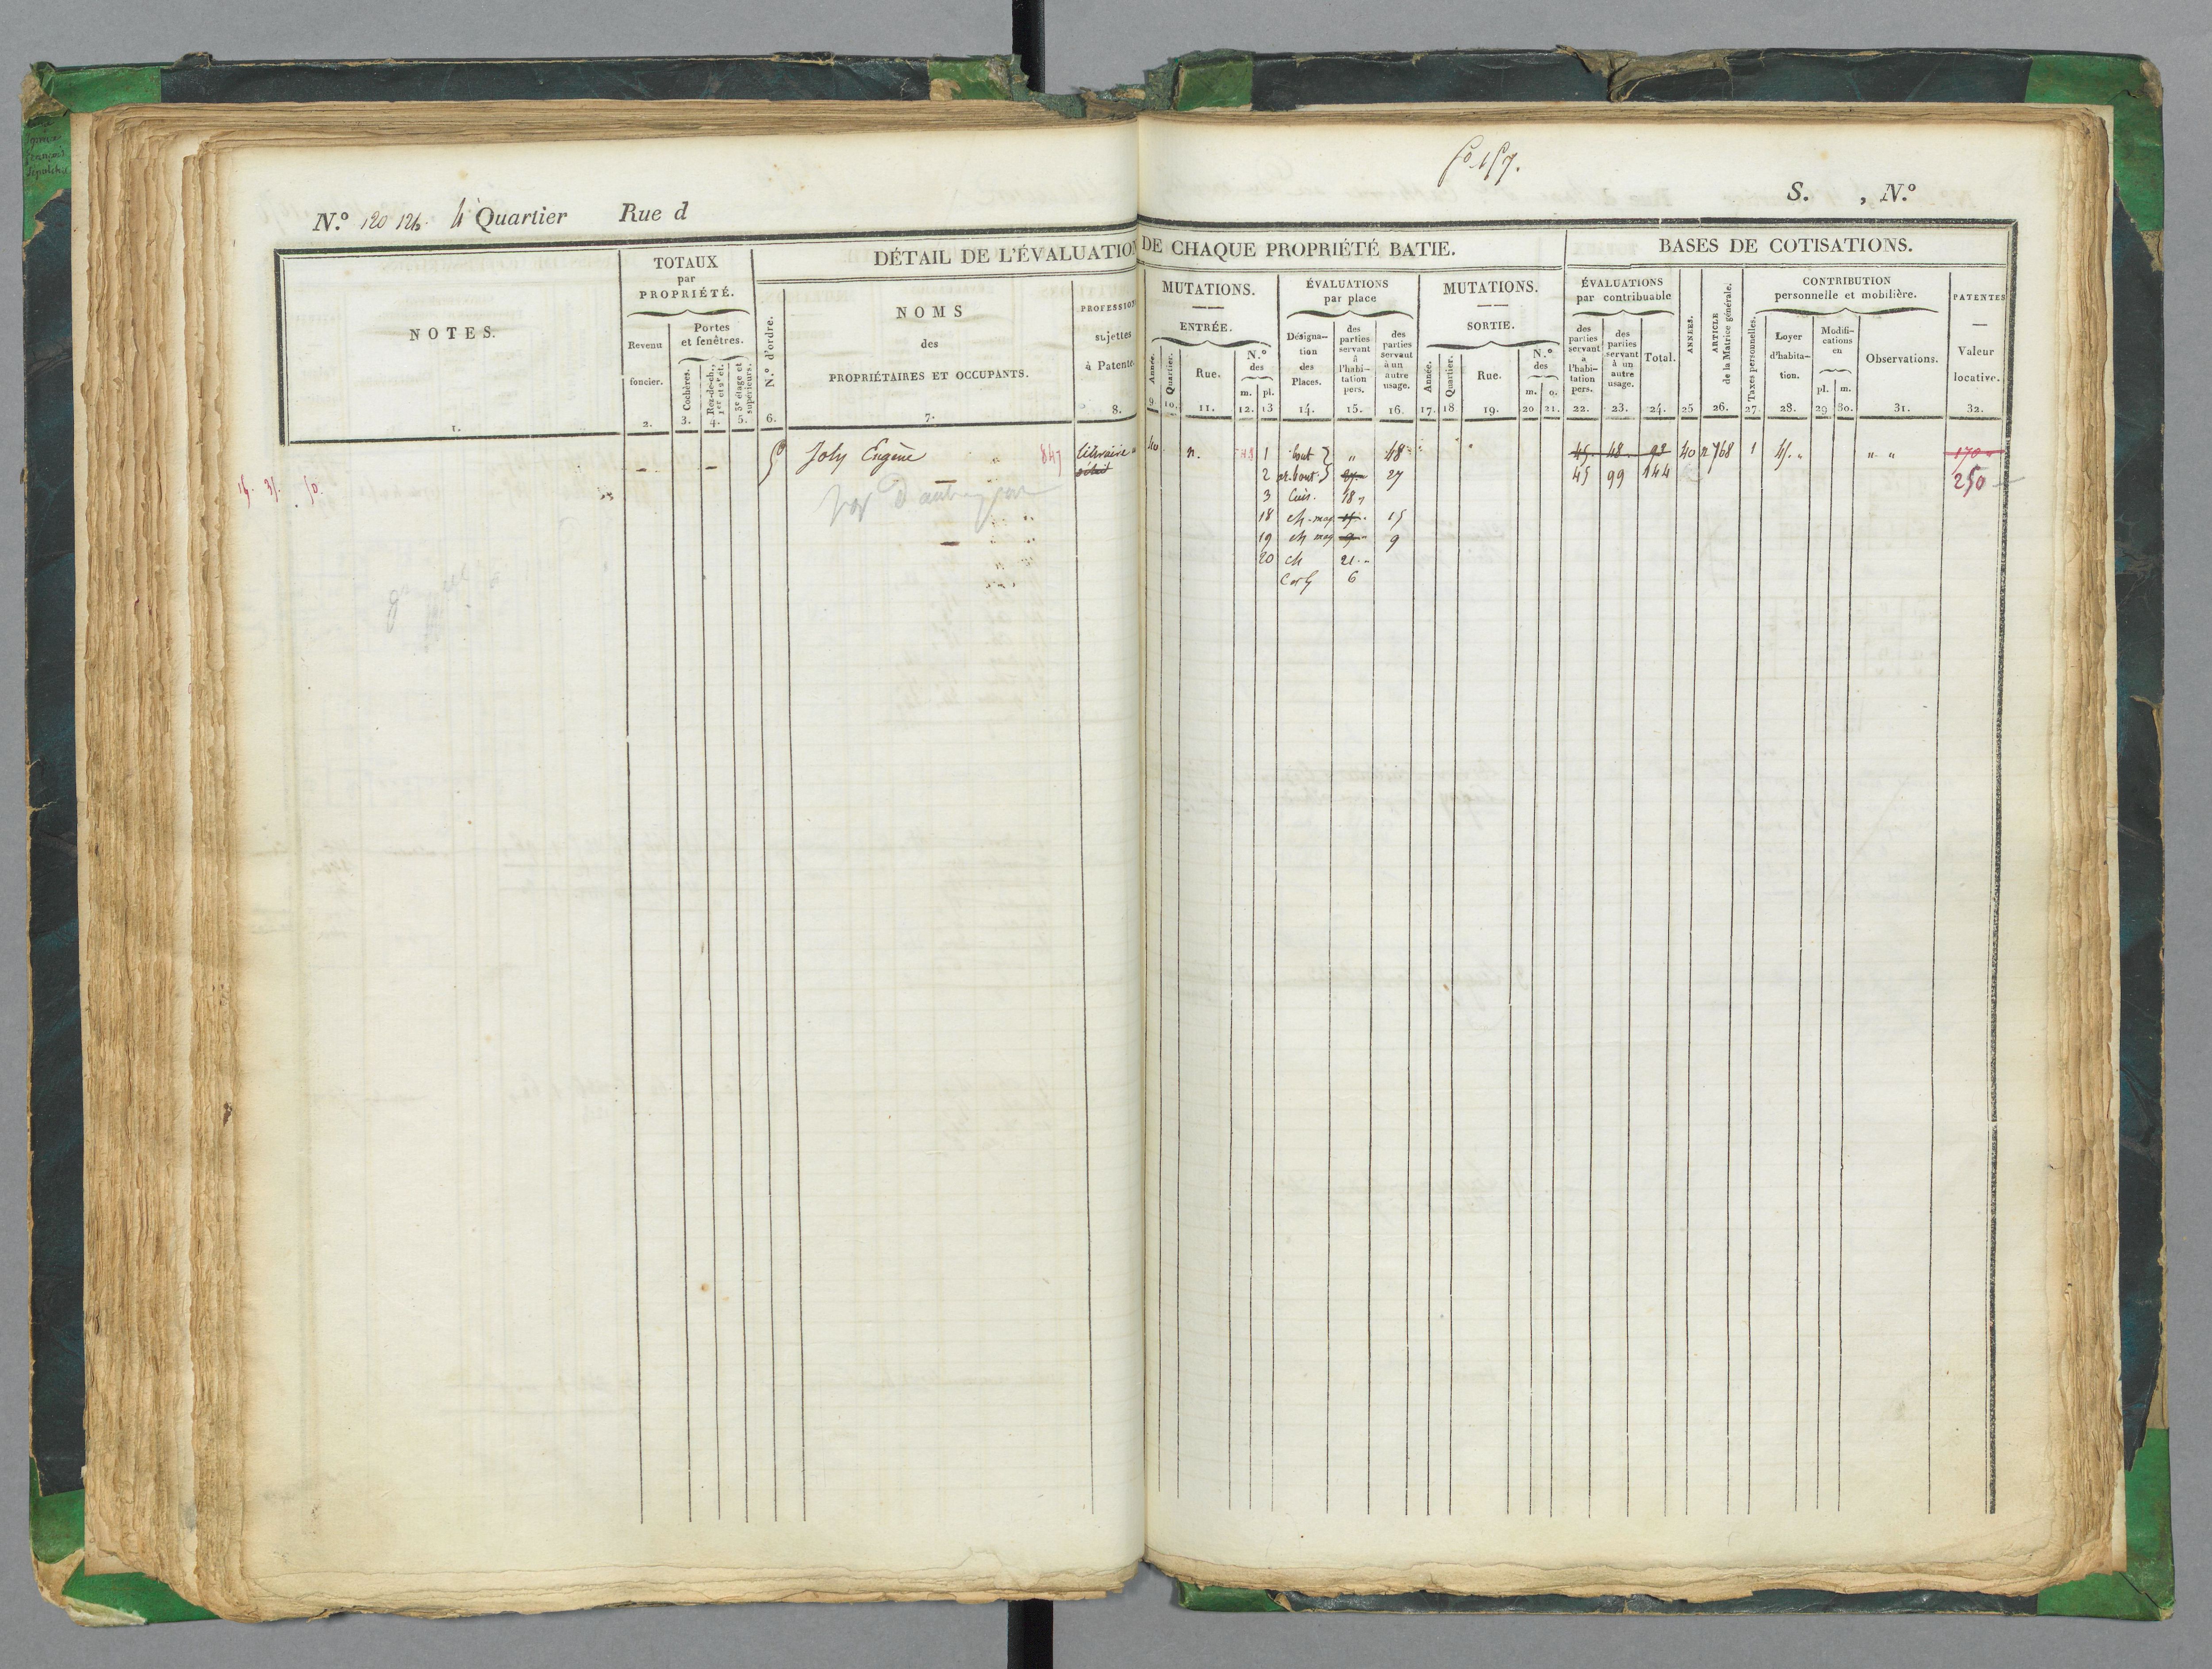 fo. 157.
N.º 120 124. 4e Quartier Rue d
S. , N.º
DÉTAIL DE L'ÉVALUATION DE CHAQUE PROPRIÉTÉ BATIE.
BASES DE COTISATIONS.
NOTES.
1.
TOTAUX
par
PROPRIÉTÉ.
Revenu
foncier.
2.
Portes
et fenêtres.
3. Cochères.
4. Rez-de-ch., 1er et 2e ét.
5. 3e étage et supérieurs.
N.º d'ordre.
6.
NOMS
des
PROPRIÉTAIRES ET OCCUPANTS.
7.
PROFESSION
sujettes
à Patente.
8.
MUTATIONS.
ENTRÉE.
Année.
9.
Quartier.
10.
Rue.
11.
N.º
des
m. pl.
12. 13
ÉVALUATIONS
par place
Désigna-
tion
des
Places.
14.
des
parties
servant
à
l'habi-
tation
pers.
15.
des
parties
servant
à un
autre
usage.
16.
MUTATIONS.
SORTIE.
Année.
17.
Quartier.
18
Rue.
19.
N.º
des
m. o.
20 21.
ÉVALUATIONS
par contribuable
des
parties
servant
à
l'habi-
tation
pers.
22.
des
parties
servant
à un
autre
usage.
23.
Total.
24.
ANNÉES.
25
ARTICLE
de la Matrice générale.
26.
CONTRIBUTION
personnelle et mobilière.
Taxes personnelles.
27.
Loyer
d'habita-
tion.
28.
Modifi-
cations
en
pl. m.
29 30.
Observations.
31.
PATENTES
Valeur
locative.
32.
Joly Eugène 847 libraire 40 n. 1 bout } „ 48 45. 48. 93 40 n 768 1 45. „ „ „ 170
détail 2 ar. bout } 27 27 45 99 144 250
3 Cuis. 18
18 ch. mag. 15 15
19 ch mag 9 9
20 ch 21
6